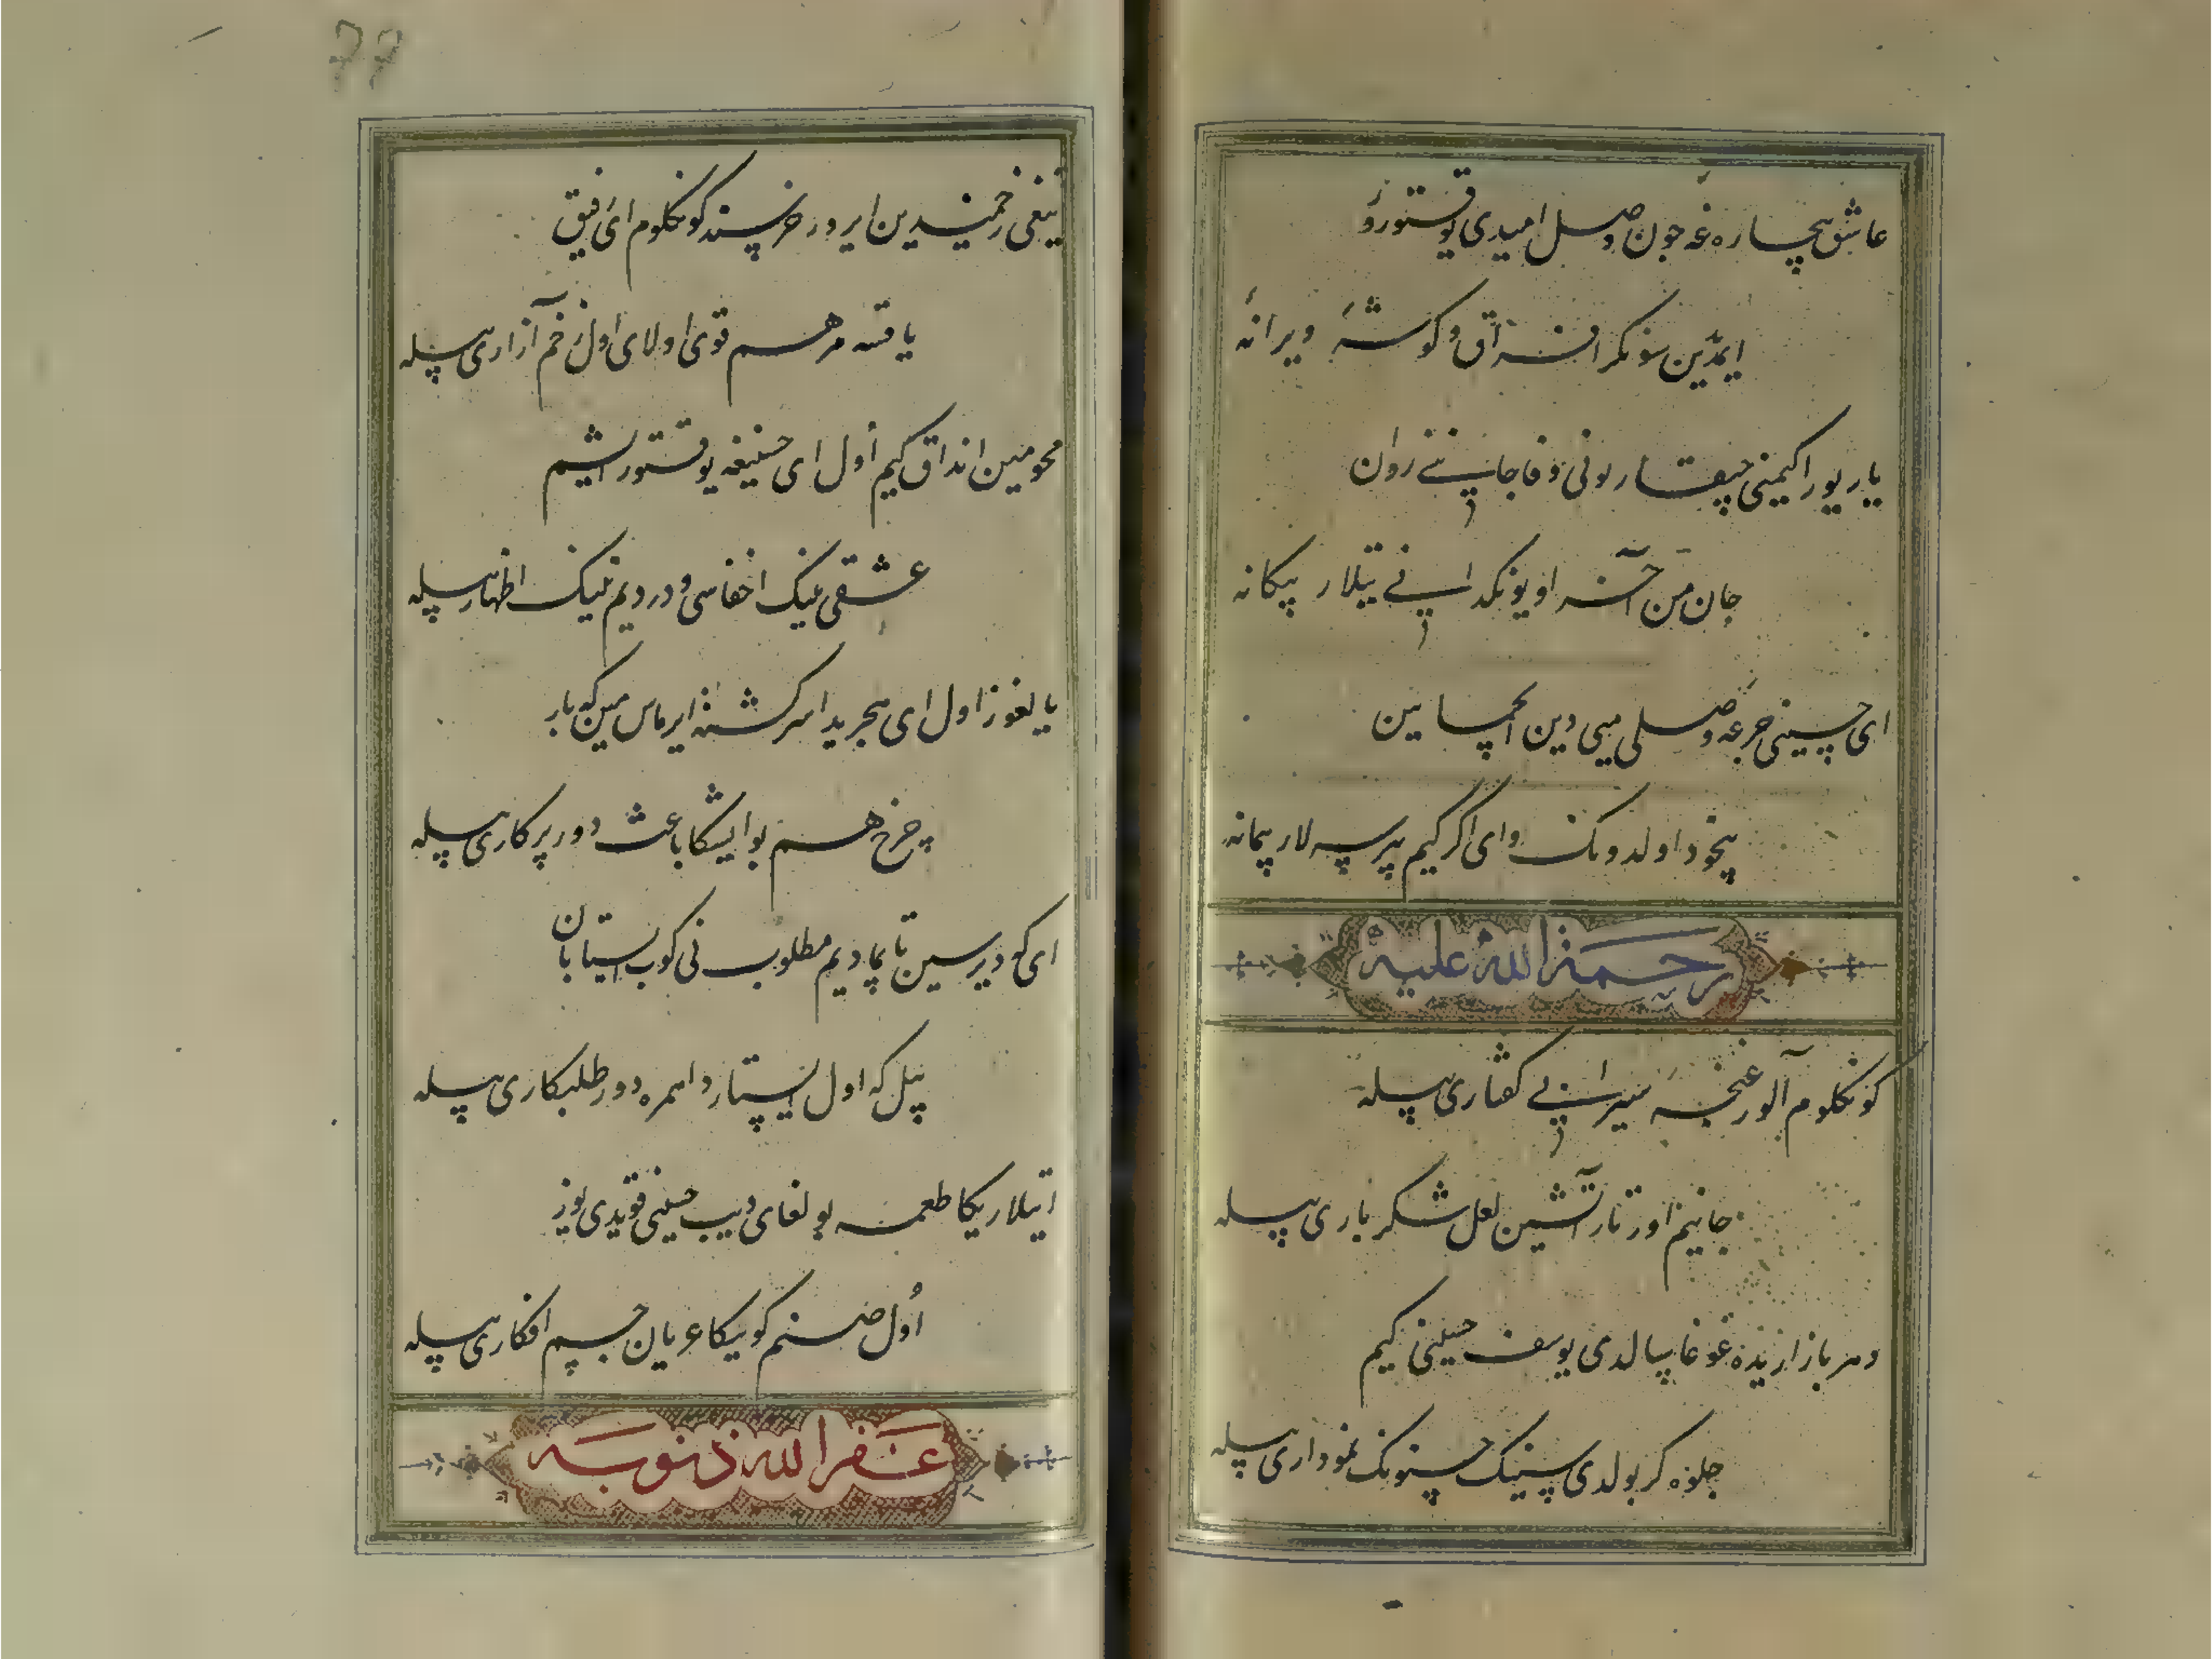 عاشق بیچاره غه چون وصل امیدی یوقتورور
ایمدین سونکرا فراق و کوشهٔ ویرانه
یار یور اکیمنی چیقسار بونی وفا جانینی روان
جان من آخر او یونکدا ایتی نی تیلار پیکانه
ای حسینی جرعه وصلی میی دین ایچماین
بیخود اولدونک وای اکر کیم بیرسه لار پیمانه
رحمة الله علیه
کونکلوم آلور غنچهٔ سیرابی کفتاری بیله
جانیم اورتار آتشین لعل شکرباری بیله
دهر بازاریده غوغا سالدی یوسف حسنی کیم
جلوه کر بولدی سینینک حسنونک نموداری بیله
تیغی زخمیدین ایرور خرسند کونکلوم ای رفیق
یاقسه مرهم قوی اولای اول زخم آزاری بیله
محو مین انداق کیم اول ای حسنیغه یوقتور ایشیم
عشقی نینک اخفاسی و دردیم نینک اظهاری بیله
یالغوز اول ای هجریدا سرکشته ایرماس مین که بار
چرخ هم بو ایشکا باعث دور پرکاری بیله
ای که دیرسین تاپمادیم مطلوب نی کوب ایستابان
بیل که اول ایستاردا همره دور طلبکاری بیله
ایتلاریکا طعمه بولغای دیب حسینی قویدی یوز
اول صنم کوییکا عریان جسم افکاری بیله
غفر الله ذنوبه
77